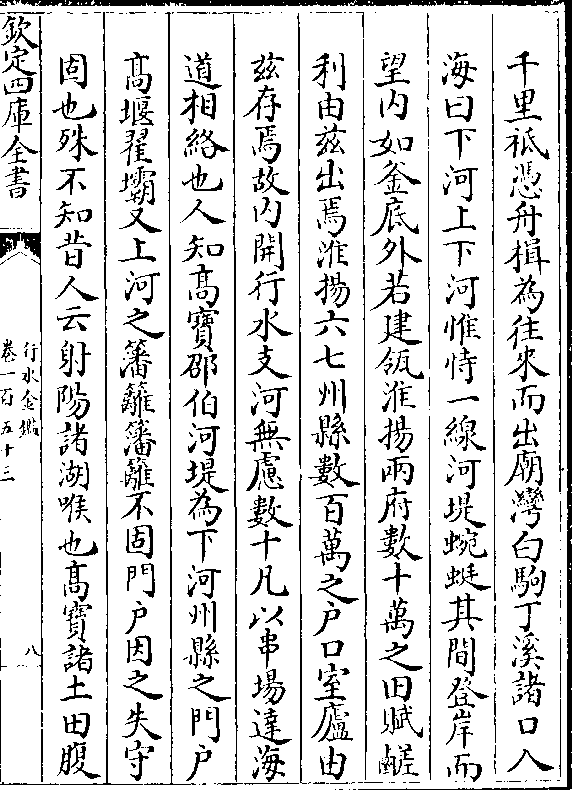 千里祗憑舟楫為往來而出廟灣白駒丁溪諸口入
海曰下河上下河惟恃一線河堤蜿蜒其間登岸而
望内如釜底外若建瓴淮揚兩府數十萬之田賦鹺
利由兹出焉淮揚六七州縣數百萬之户口室廬由
兹存焉故内開行水支河無慮數十凡以串場達海
道相絡也人知髙寶邵伯河堤為下河州縣之門户
髙堰翟壩又上河之籓籬籓籬不固門户因之失守
固也殊不知昔人云射陽諸湖喉也髙寶諸土田腹
欽定四庫全書
行水金鑑
卷一百五十三
八